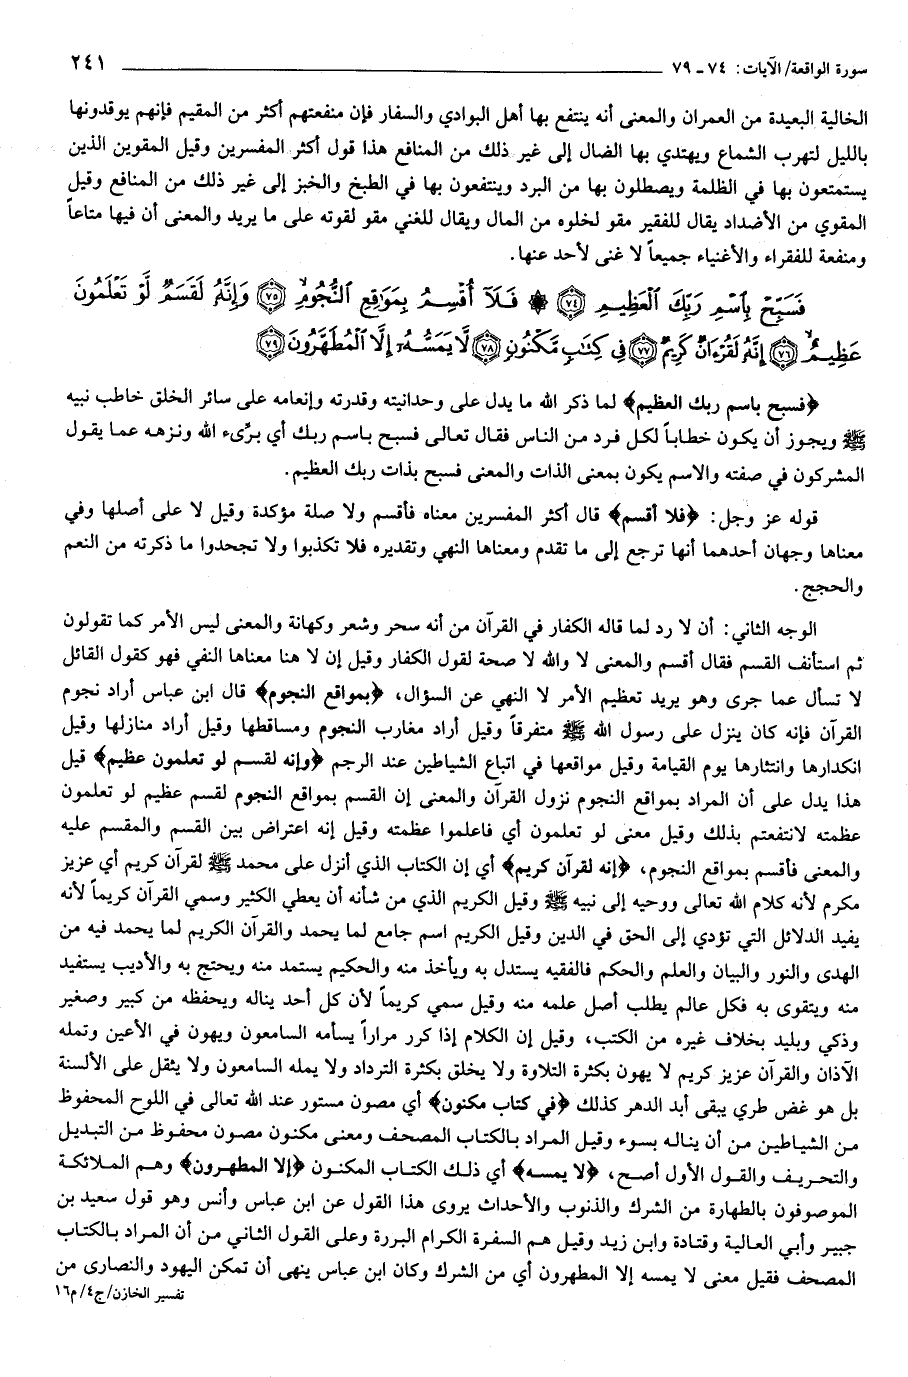 سورة الواقعة/ الآيات: ٧٤ ـ ٧٩ ٢٤١
الخالية البعيدة من العمران والمعنى أنه ينتفع بها أهل البوادي والسفار فإن منفعتهم أكثر من المقيم فإنهم يوقدونها
بالليل لتهرب الشماع ويهتدي بها الضال إلى غير ذلك من المنافع هذا قول أكثر المفسرين وقيل المقوين الذين
يستمتعون بها في الظلمة ويصطلون بها من البرد وينتفعون بها في الطبخ والخبز إلى غير ذلك من المنافع وقيل
المقوي من الأضداد يقال للفقير مقو لخلوه من المال ويقال للغني مقو لقوته على ما يريد والمعنى أن فيها متاعاً
ومنفعة للفقراء والأغنياء جميعاً لا غنى لأحد عنها.
فَسَبِّحْ بِاسْمِ رَبِّكَ الْعَظِيمِ ﴿٧٤﴾ ۞ فَلَا أُقْسِمُ بِمَوَاقِعِ النُّجُومِ ﴿٧٥﴾ وَإِنَّهُ لَقَسَمٌ لَّوْ تَعْلَمُونَ
عَظِيمٌ ﴿٧٦﴾ إِنَّهُ لَقُرْءَانٌ كَرِيمٌ ﴿٧٧﴾ فِي كِتَابٍ مَّكْنُونٍ ﴿٧٨﴾ لَّا يَمَسُّهُ إِلَّا الْمُطَهَّرُونَ ﴿٧٩﴾
﴿فسبح باسم ربك العظيم﴾ لما ذكر الله ما يدل على وحدانيته وقدرته وإنعامه على سائر الخلق خاطب نبيه
ﷺ ويجوز أن يكون خطاباً لكل فرد من الناس فقال تعالى فسبح باسم ربك أي برِّىء الله ونزهه عما يقول
المشركون في صفته والاسم يكون بمعنى الذات والمعنى فسبح بذات ربك العظيم.
قوله عز وجل: ﴿فلا أقسم﴾ قال أكثر المفسرين معناه فأقسم ولا صلة مؤكدة وقيل لا على أصلها وفي
معناها وجهان أحدهما أنها ترجع إلى ما تقدم ومعناها النهي وتقديره فلا تكذبوا ولا تجحدوا ما ذكرته من النعم
والحجج.
الوجه الثاني: أن لا رد لما قاله الكفار في القرآن من أنه سحر وشعر وكهانة والمعنى ليس الأمر كما تقولون
ثم استأنف القسم فقال أقسم والمعنى لا والله لا صحة لقول الكفار وقيل إن لا هنا معناها النفي فهو كقول القائل
لا تسأل عما جرى وهو يريد تعظيم الأمر لا النهي عن السؤال، ﴿بمواقع النجوم﴾ قال ابن عباس أراد نجوم
القرآن فإنه كان ينزل على رسول الله ﷺ متفرقاً وقيل أراد مغارب النجوم ومساقطها وقيل أراد منازلها وقيل
انكدارها وانتثارها يوم القيامة وقيل مواقعها في اتباع الشياطين عند الرجم ﴿وإنه لقسم لو تعلمون عظيم﴾ قيل
هذا يدل على أن المراد بمواقع النجوم نزول القرآن والمعنى إن القسم بمواقع النجوم لقسم عظيم لو تعلمون
عظمته لانتفعتم بذلك وقيل معنى لو تعلمون أي فاعلموا عظمته وقيل إنه اعتراض بين القسم والمقسم عليه
والمعنى فأقسم بمواقع النجوم، ﴿إنه لقرآن كريم﴾ أي إن الكتاب الذي أنزل على محمد ﷺ لقرآن كريم أي عزيز
مكرم لأنه كلام الله تعالى ووحيه إلى نبيه ﷺ وقيل الكريم الذي من شأنه أن يعطي الكثير وسمي القرآن كريماً لأنه
يفيد الدلائل التي تؤدي إلى الحق في الدين وقيل الكريم اسم جامع لما يحمد والقرآن الكريم لما يحمد فيه من
الهدى والنور والبيان والعلم والحكم فالفقيه يستدل به ويأخذ منه والحكيم يستمد منه ويحتج به والأديب يستفيد
منه ويتقوى به فكل عالم يطلب أصل علمه منه وقيل سمي كريماً لأن كل أحد يناله ويحفظه من كبير وصغير
وذكي وبليد بخلاف غيره من الكتب، وقيل إن الكلام إذا كرر مراراً يسأمه السامعون ويهون في الأعين وتمله
الآذان والقرآن عزيز كريم لا يهون بكثرة التلاوة ولا يخلق بكثرة الترداد ولا يمله السامعون ولا يثقل على الألسنة
بل هو غض طري يبقى أبد الدهر كذلك ﴿في كتاب مكنون﴾ أي مصون مستور عند الله تعالى في اللوح المحفوظ
من الشياطين من أن يناله بسوء وقيل المراد بالكتاب المصحف ومعنى مكنون مصون محفوظ من التبديل
والتحريف والقول الأول أصح، ﴿لا يمسه﴾ أي ذلك الكتاب المكنون ﴿إلا المطهرون﴾ وهم الملائكة
الموصوفون بالطهارة من الشرك والذنوب والأحداث يروى هذا القول عن ابن عباس وأنس وهو قول سعيد بن
جبير وأبي العالية وقتادة وابن زيد وقيل هم السفرة الكرام البررة وعلى القول الثاني من أن المراد بالكتاب
المصحف فقيل معنى لا يمسه إلا المطهرون أي من الشرك وكان ابن عباس ينهى أن تمكن اليهود والنصارى من
تفسير الخازن/ج٤/م١٦